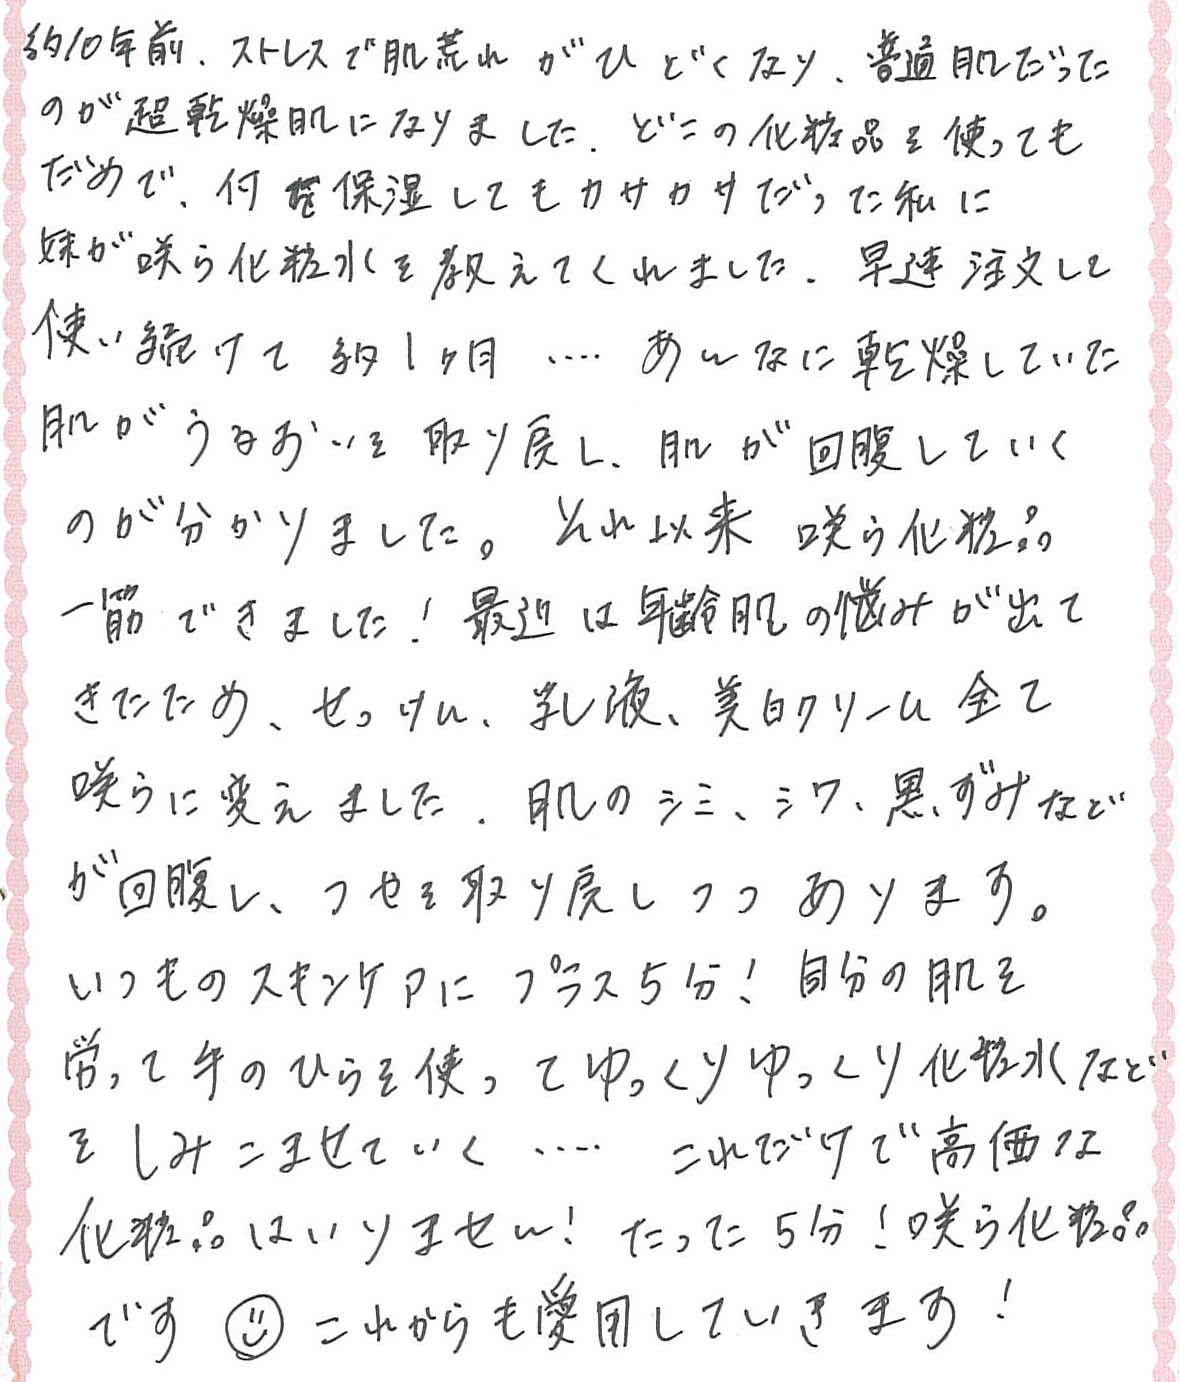 約10年前、ストレスで肌荒れがひどくなり、普通肌だった
のが超乾燥肌になりました。どこの化粧品を使っても
だめで、何を保湿してもカサカサだった私に
妹が咲ら化粧水を教えてくれました。早速注文して
使い続けて約1ヶ月‥‥あんなに乾燥していた
肌がうるおいを取り戻し、肌が回腹していく
のが分かりました。それ以来咲ら化粧品
一筋できました!最近は年齢肌の悩みが出て
きたため、せっけん、乳液、美白クリーム全て
咲らに変えました。肌のシミ、シワ、黒ずみなど
が回腹し、つやを取り戻しつつあります。
いつものスキンケアにプラス5分!自分の肌を
労って手のひらを使ってゆっくりゆっくり化粧水など
をしみこませていく‥‥これだけで高価な
化粧品はいりません!たった5分!咲ら化粧品
です☺これからも愛用していきます!